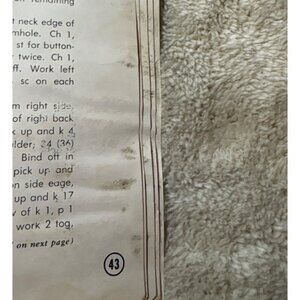 on remaining
t neck edge of
mhole. Ch 1,
st for button-
twice. Ch 1,
ff. Work left
sc on each
m right side,
of right back
k up and k 4,
ulder, 24 (36)
Bind off in
pick up and
on side eage,
up and k 17
v of k 1, p 1
work 2 tog,
on next page)
43